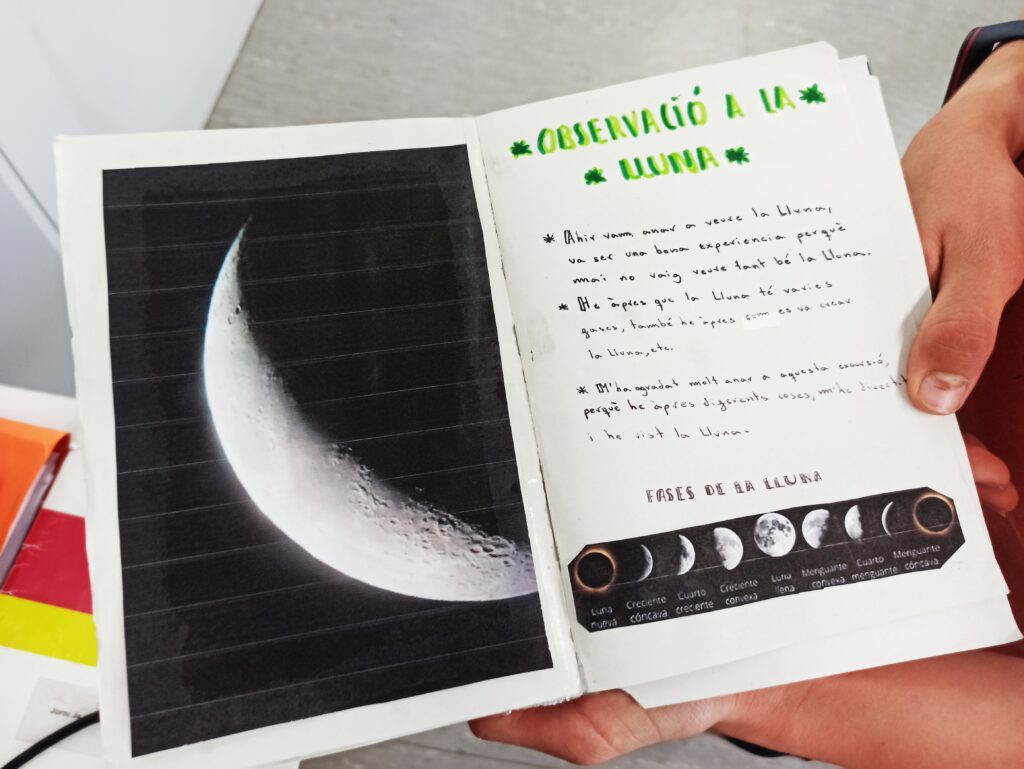 OBSERVACIÓ A LA
LLUNA
* Ahir vam anar a veure la Lluna,
va ser una bona experiencia perquè
mai no vaig veure tant bé la Lluna.
* He àpres que la Lluna té varies
gases, també he àpres com es va crear
la Lluna, etc.
* M'ha agradat molt anar a aquesta excursió,
perquè he àpres diferents coses, m'he divertit
i he vist la Lluna.
FASES DE LA LLUNA
Luna nueva
Creciente cóncava
Cuarto creciente
Creciente convexa
Luna llena
Menguante convexa
Cuarto menguante
Menguante cóncava